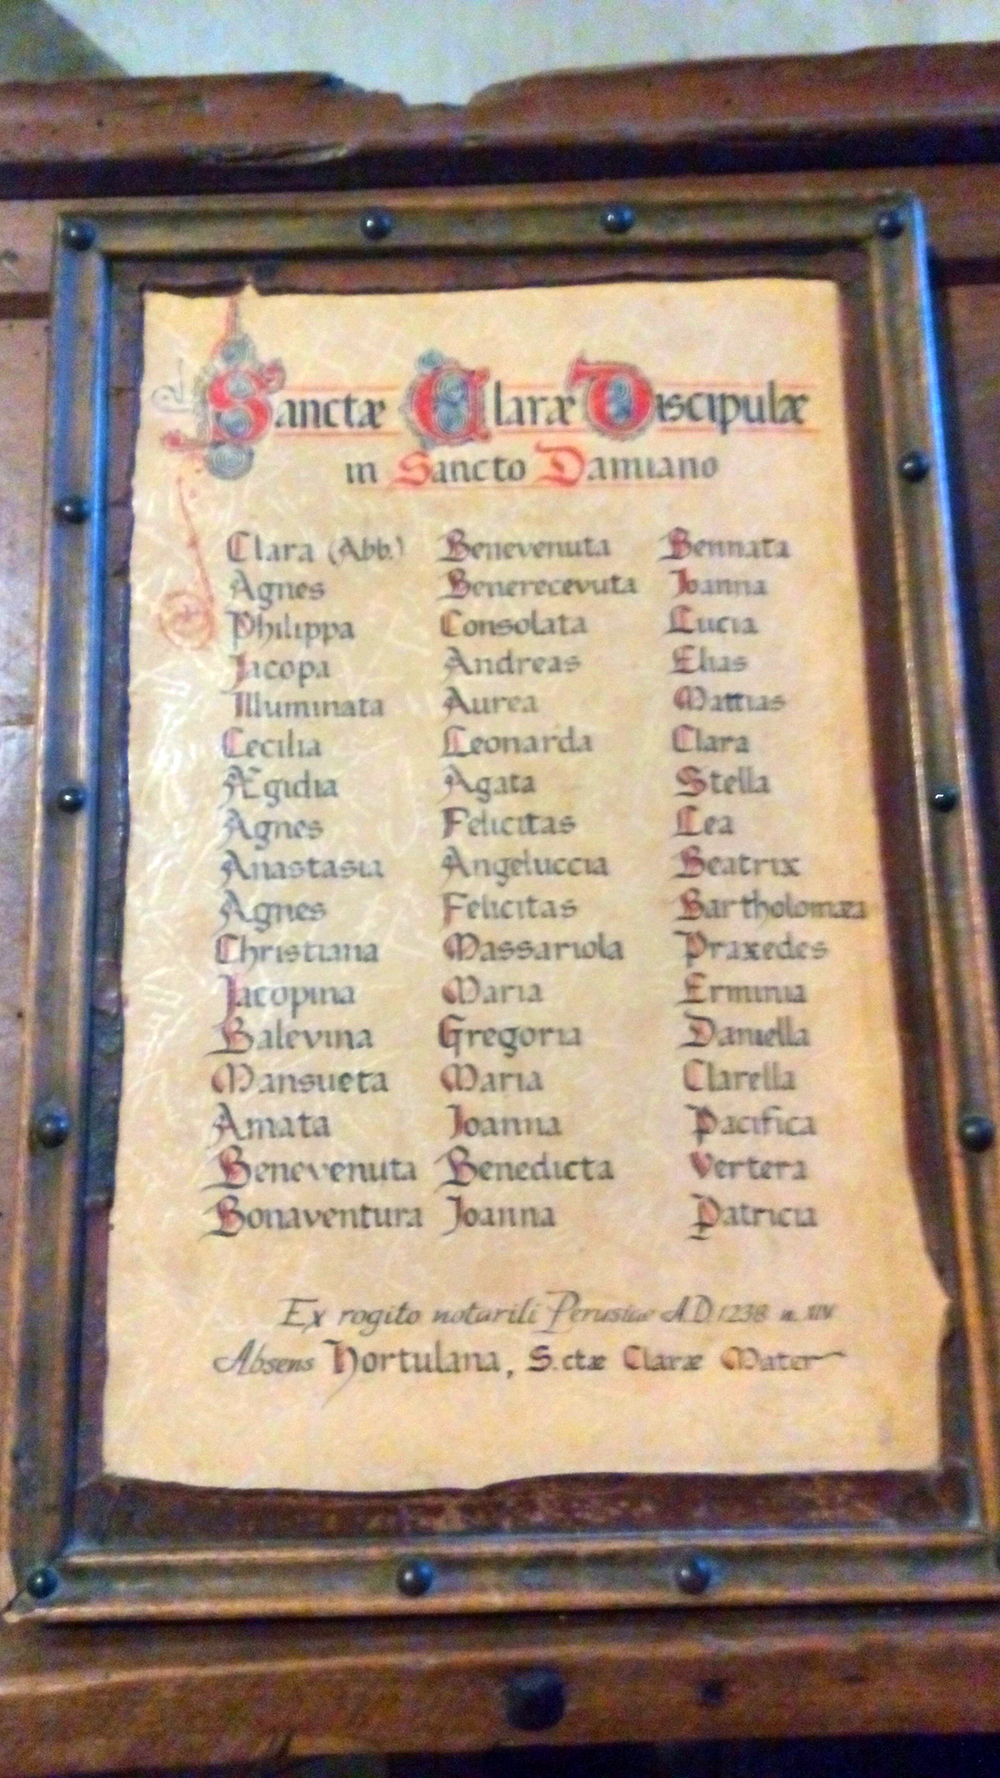 Sanctæ Claræ Discipulæ
in Sancto Damiano
Clara (Abb.) Benevenuta Bennata
Agnes Benerecevuta Joanna
Philippa Consolata Lucia
Jacopa Andreas Elias
Illuminata Aurea Mattias
Cecilia Leonarda Clara
Ægidia Agata Stella
Agnes Felicitas Lea
Anastasia Angeluccia Beatrix
Agnes Felicitas Bartholomæa
Christiana Massariola Praxedes
Jacopina Maria Erminia
Balevina Gregoria Daniella
Mansueta Maria Clarella
Amata Joanna Pacifica
Benevenuta Benedicta Vertera
Bonaventura Joanna Patricia
Ex rogito notarili Perusiae A.D. 1238 n. XIV
Absens Hortulana, S.ctæ Claræ Mater